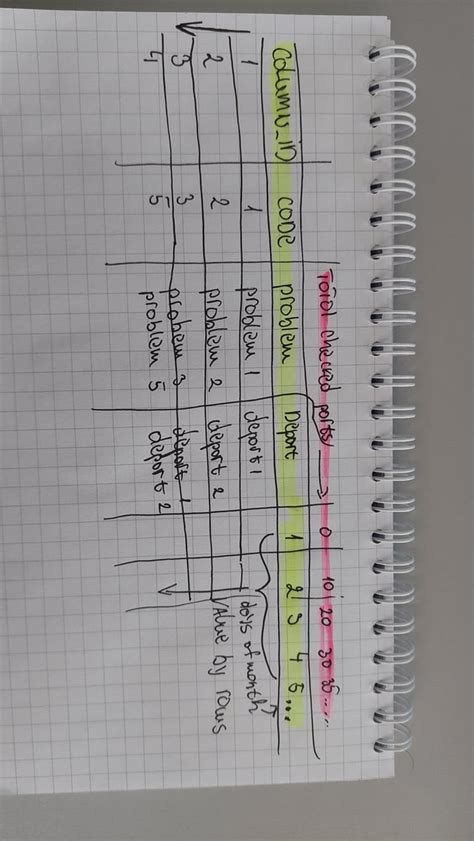 Total checked ports → 0 10 20 30 35....
column_ID CODE problem Depart 1 2 3 4 5...
1 1 problem 1 depart 1 days of month
2 2 problem 2 depart 2 value by rows
3 3 problem 3 depart 1
4 5 problem 5 depart 2